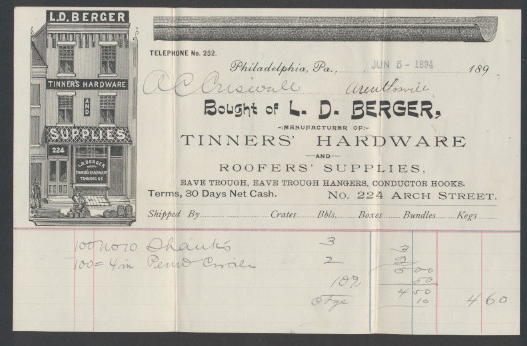 L.D. BERGER
TINNER'S HARDWARE
AND
SUPPLIES
224
L.D. BERGER
TELEPHONE No. 252.
Philadelphia, Pa., JUN 5 - 1894 189
A C
Bought of L. D. BERGER,
MANUFACTURER OF
TINNERS' HARDWARE
AND
ROOFERS' SUPPLIES,
EAVE TROUGH, EAVE TROUGH HANGERS, CONDUCTOR HOOKS.
Terms, 30 Days Net Cash. No. 224 ARCH STREET.
Shipped By Crates Bbls. Boxes Bundles Kegs
100 No 10 Shanks 3 3
100 = 4 in 2 2
5 00
10% 50
4 50
10 4 60